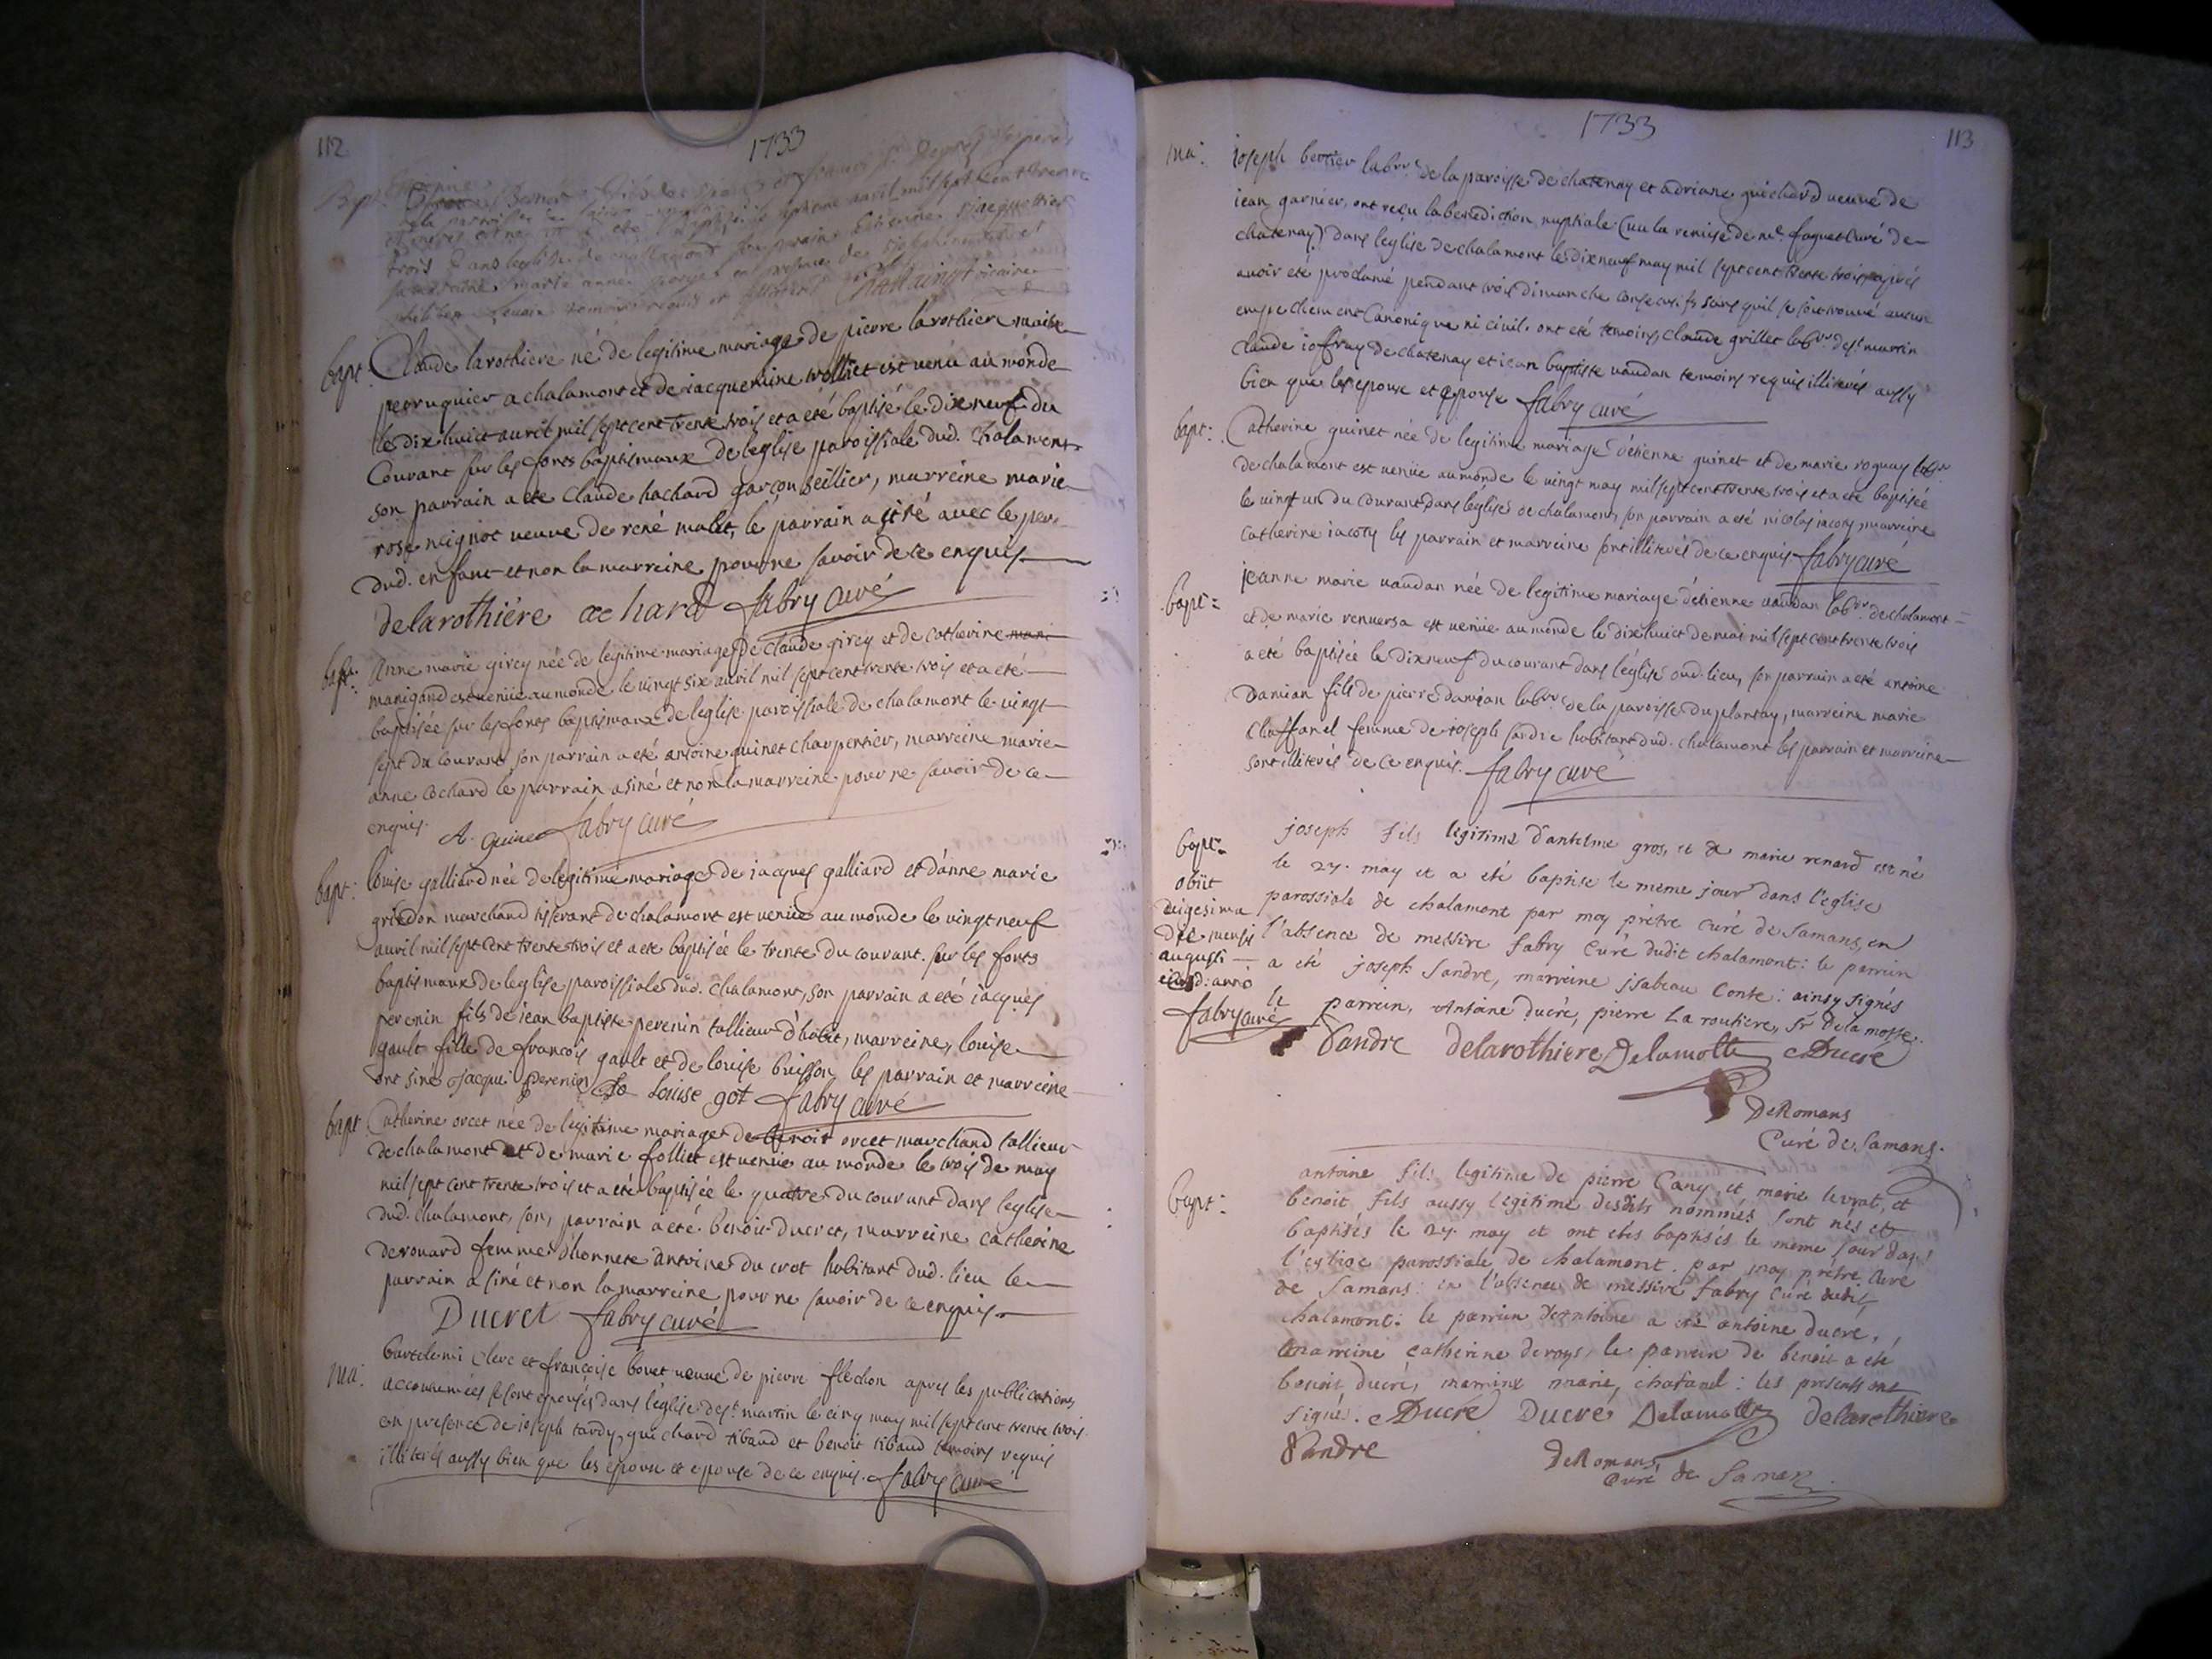 112
1733
Bapt:
trois dans leglise de
bapt: Claude larothiere né de legitime mariage de pierre larothiere maitre
perruquier a chalamont et de iacquemine trolliet est venu au monde
le dix huict avril mil sept cent trente trois et a été baptisé le dix neuf du
Courant sur les fonts baptismaux de leglise paroissiale dud. Chalamont
son parrain a eté Claude hachard garçon seillier, marreine marie
rose mignot veuve de rené malet, le parrain a siné avec le pere
dud. enfant et non la marreine pour ne savoir de ce enquis
delarothiére achard fabry curé
bapt: Anne marie girey née de legitime mariage de Claude girey et de Catherine mani
manigand est veniie au monde le vingt six avril mil sept cent trente trois et a eté
baptisée sur les fonts baptismaux de leglise paroissiale de chalamont le vingt
sept du Courant son parrain a eté antoine quinet charpentier, marreine marie
anne Cochard le parrain a siné et non la marreine pour ne savoir de ce
enquis. A. Quinet fabry curé
bapt: louise galliard née de legitime mariage de iacques galliard et d'anne marie
griedon marchand tisserant de chalamont est veniie au monde le vingt neuf
avril mil sept cent trente trois et a ete baptisée le trente du courant. sur les fonts
baptismaux de leglise paroissiale dud. Chalamont, son parrain a eté iacques
perenin fils de iean baptiste perenin tallieur d'habit, marreine, louise
gault fille de francois gault et de louise buisson les parrain et marreine
ont siné Jacqui Perenin Louise got fabry curé
bapt: Catherine orcet née de legitime mariage de benoit orcet marchand tallieur
de chalamont et de marie folliet est veniie au monde le trois de may
mil sept cent trente trois et a eté baptisée le quatre du courant dans leglise
dud. Chalamont, son, parrain a eté benoit ducret, marreine catherine
derouard femme d'honnete antoine du crot habitant dud. lieu le
parrain a siné et non la marreine pour ne savoir de ce enquis
Ducret fabry curé
ma: bartelemi Clerc et francoise bouet veuve de pierre flechon apres les publications
accoutumées se sont epousés dans l'église de st. martin le cinq may mil sept cent trente trois
en presence de ioseph tardy, guichard tibaud et benoit tibaud temoins requis
illiterés aussy bien que les epoux et epouse de ce enquis. fabry curé
1733
113
ma: ioseph bertier labvr. de la paroisse de chatenay et adriane guichard veuve de
iean garnier, ont reçu la benediction nuptiale (vu la remise de mr. faguet Curé de
chatenay) dans leglise de chalamont le dix neuf may mil sept cent trente trois apres
avoir eté proclamé pendant trois dimanche consecutifs sans quil se soit trouvé aucun
empechement Canonique ni civil. ont eté temoins, Claude grillet labvr. de st. martin
Claude ioffray de chatenay et iean baptiste vaudan temoins requis illiterés aussy
bien que les epoux et epouse fabry curé
bapt: Catherine guinet née de legitime mariage d'etienne guinet et de marie roguay labvr
de chalamont est veniie au monde le vingt may mil sept cent trente trois et a eté baptisée
le vingt un du Courant dans leglise de chalamont, son parrain a eté nicolas iacoty, marreine
Catherine iacoty les parrain et marreine sont illiterés de ce enquis fabry curé
bapt: jeanne marie vaudan née de legitime mariage d'etienne vaudan labvr. de chalamont
et de marie renversa est veniie au monde le dix huict de mai mil sept cent trente trois
a eté baptisée le dix neuf du courant dans l'église dud. lieu, son parrain a eté antoine
Damian fils de pierre damian labvr. de la paroisse du plantay, marreine marie
Chaffanel femme de ioseph sandre habitant dud. Chalamont les parrain et marreine
sont illiterés de ce enquis. fabry curé
bapt: joseph fils legitime d'antelme gros, et de marie renard est né
le 27. may et a eté baptise le meme jour dans l'eglise
parossiale de chalamont par moy prêtre curé de Samans, en
l'absence de messire fabry Curé dudit chalamont: le parrin
a eté joseph Sandre, marreine jsabeau Conte: ainsy signés
le parrein, Antoine ducré, pierre La routiere, Sr Delamotte.
obiit
vigesima
die mensis
augusti
eiusd: anno
fabry curé
Sandre Delarothiere Delamotte Ducré
DeRomans
Curé de Samans.
bapt: antoine fils legitime de pierre Cany, et marie levrat, et
benoit fils aussy legitime desdits nommés sont nés et
baptisés le 27. may et ont etés baptisés le meme jour dans
l'eglise parossiale de chalamont. par moy prêtre Curé
de Samans: en l'absence de messire fabry Curé dudit
chalamont: le parrin d'Antoine a eté antoine ducré,
marreine catherine deroys, le parrein de benoit a eté
benoit ducré, marrine marie chafanel: les presents ont
signé. Ducré Ducré Delamotte Delarothiere
Sandre
DeRomans
Curé de Samans